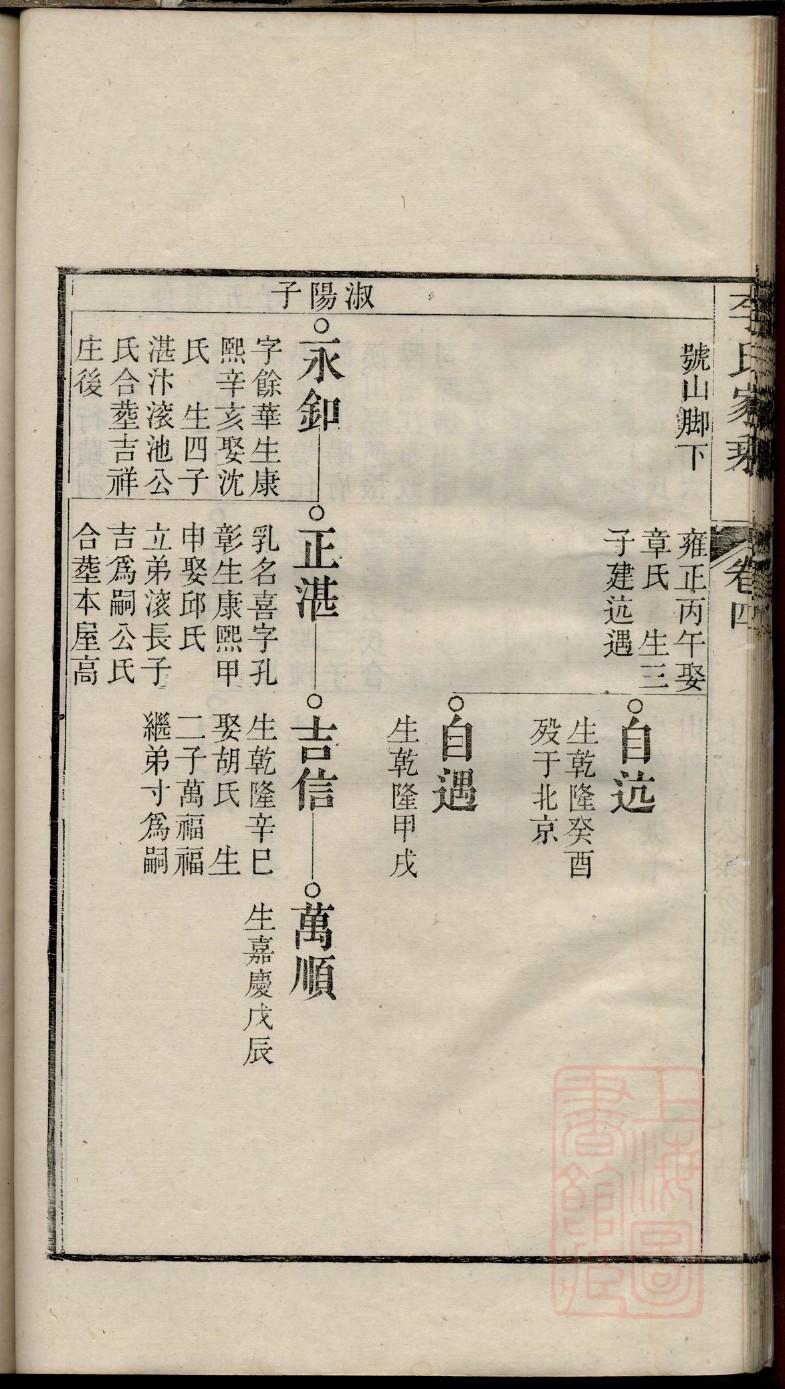 李氏家乘
卷四
號山脚下
雍正丙午娶
章氏　生三
子建迒遇
自迒
生乾隆癸酉
殁于北京
自遇
生乾隆甲戌
淑陽子
永釦
字餘華生康
熙辛亥娶沈
氏　生四子
湛汴滚池公
氏合塟吉祥
庄後
正湛
乳名喜字孔
彰生康熙甲
申娶邱氏
立弟滚長子
吉爲嗣公氏
合塟本屋高
吉信
生乾隆辛巳
娶胡氏　生
二子萬福福
繼弟寸爲嗣
萬順
生嘉慶戊辰
上海圖
書館藏